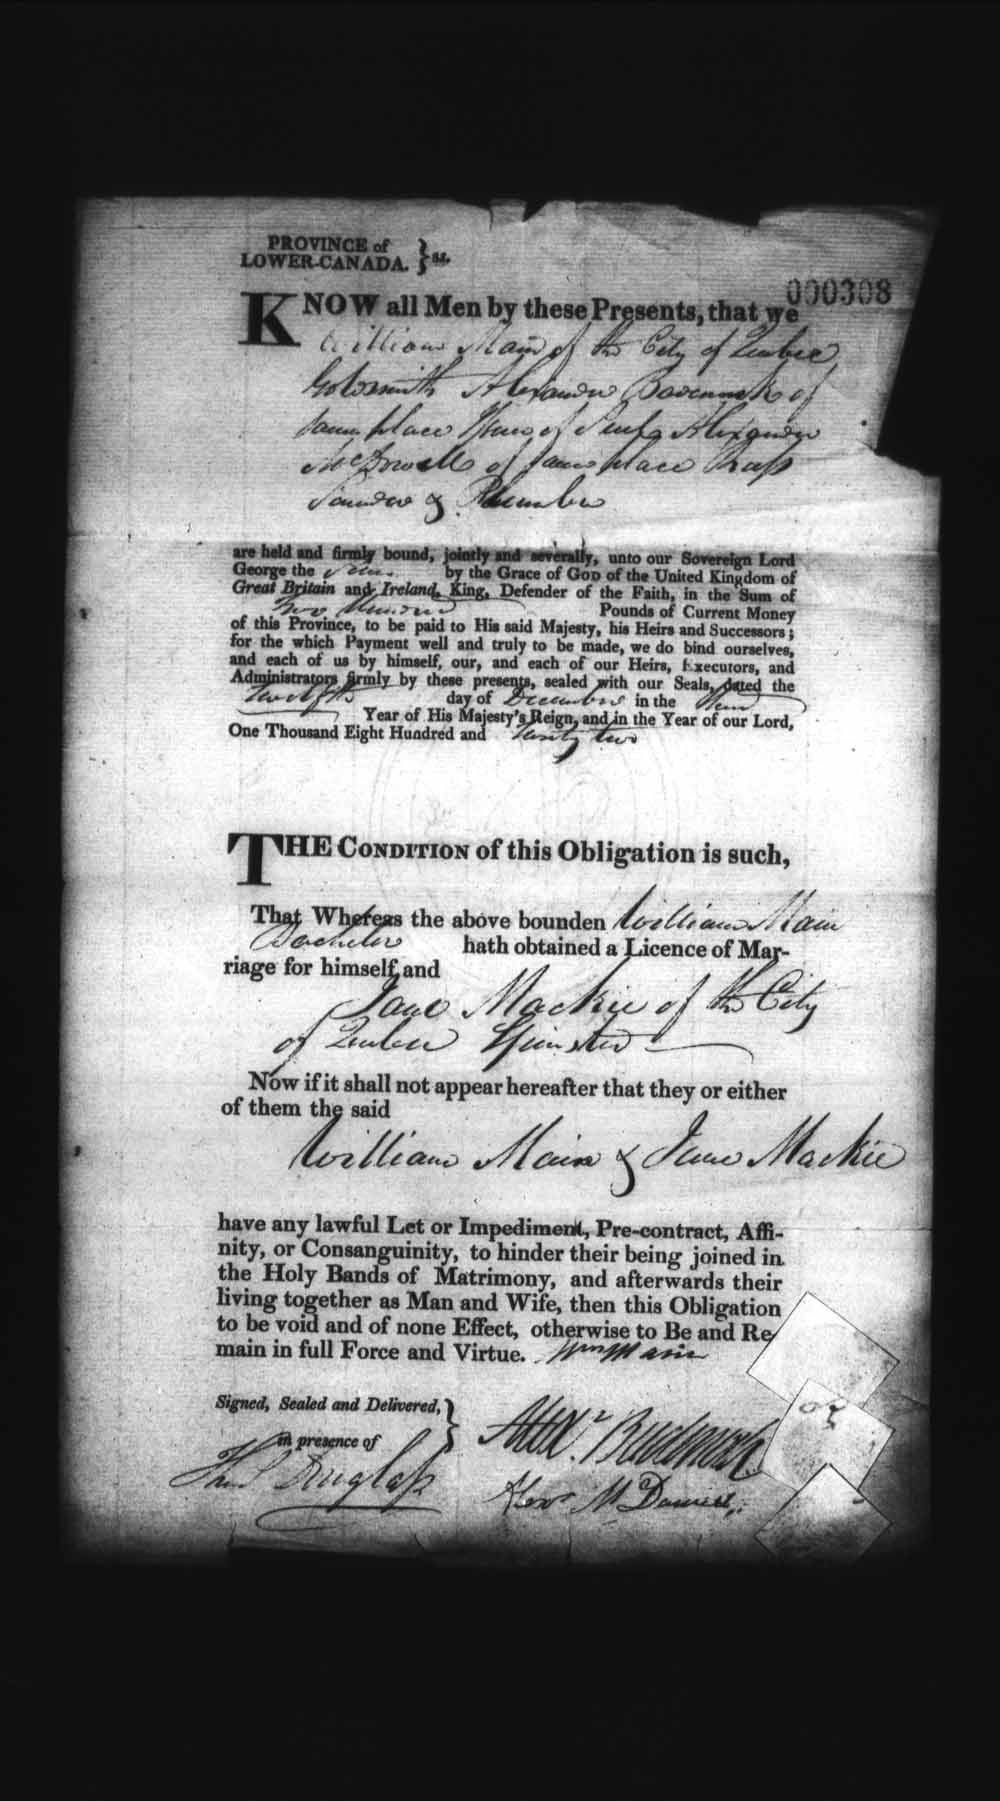 PROVINCE of
LOWER-CANADA. } ss.
000308
KNOW all Men by these Presents, that we
William Main of the City of Quebec
Goldsmith Alexander Badenoch of
same place of Alexander
of same place
& Plumber
are held and firmly bound, jointly and severally, unto our Sovereign Lord
George the by the Grace of GOD of the United Kingdom of
Great Britain and Ireland, King, Defender of the Faith, in the Sum of
Two Hundred Pounds of Current Money
of this Province, to be paid to His said Majesty, his Heirs and Successors;
for the which Payment well and truly to be made, we do bind ourselves,
and each of us by himself, our, and each of our Heirs, Executors, and
Administrators firmly by these presents, sealed with our Seals, dated the
twelfth day of December in the Third
Year of His Majesty's Reign, and in the Year of our Lord,
One Thousand Eight Hundred and twenty two
THE CONDITION of this Obligation is such,
That Whereas the above bounden William Main
Bachelor hath obtained a Licence of Mar-
riage for himself and
Jane Mackie of the City
of Quebec Spinster
Now if it shall not appear hereafter that they or either
of them the said
William Main & Jane Mackie
have any lawful Let or Impediment, Pre-contract, Affi-
nity, or Consanguinity, to hinder their being joined in
the Holy Bands of Matrimony, and afterwards their
living together as Man and Wife, then this Obligation
to be void and of none Effect, otherwise to Be and Re-
main in full Force and Virtue. Wm Main
Signed, Sealed and Delivered, }
in presence of
Alexr. Badenoch
Douglass
Alexr